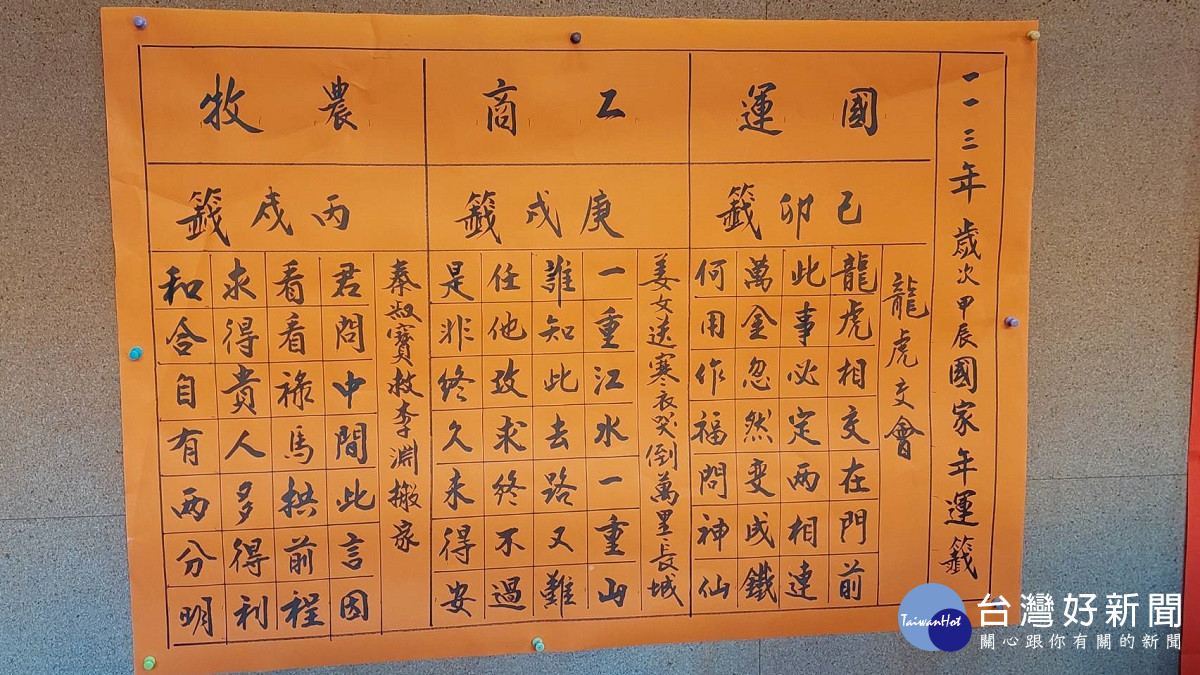 一一三年歲次甲辰國家年運籤
國運
己卯籤
龍虎交會
龍虎相交在門前
此事必定兩相連
萬金忽然變成鐵
何用作福問神仙
工商
庚戌籤
姜女送寒衣哭倒萬里長城
一重江水一重山
誰知此去路又難
任他改求終不過
是非終久未得安
農牧
丙戌籤
秦叔寶救李淵搬家
君問中間此言因
看看祿馬拱前程
求得貴人多得利
和合自有兩分明
TaiwanHot
台灣好新聞
關心跟你有關的新聞